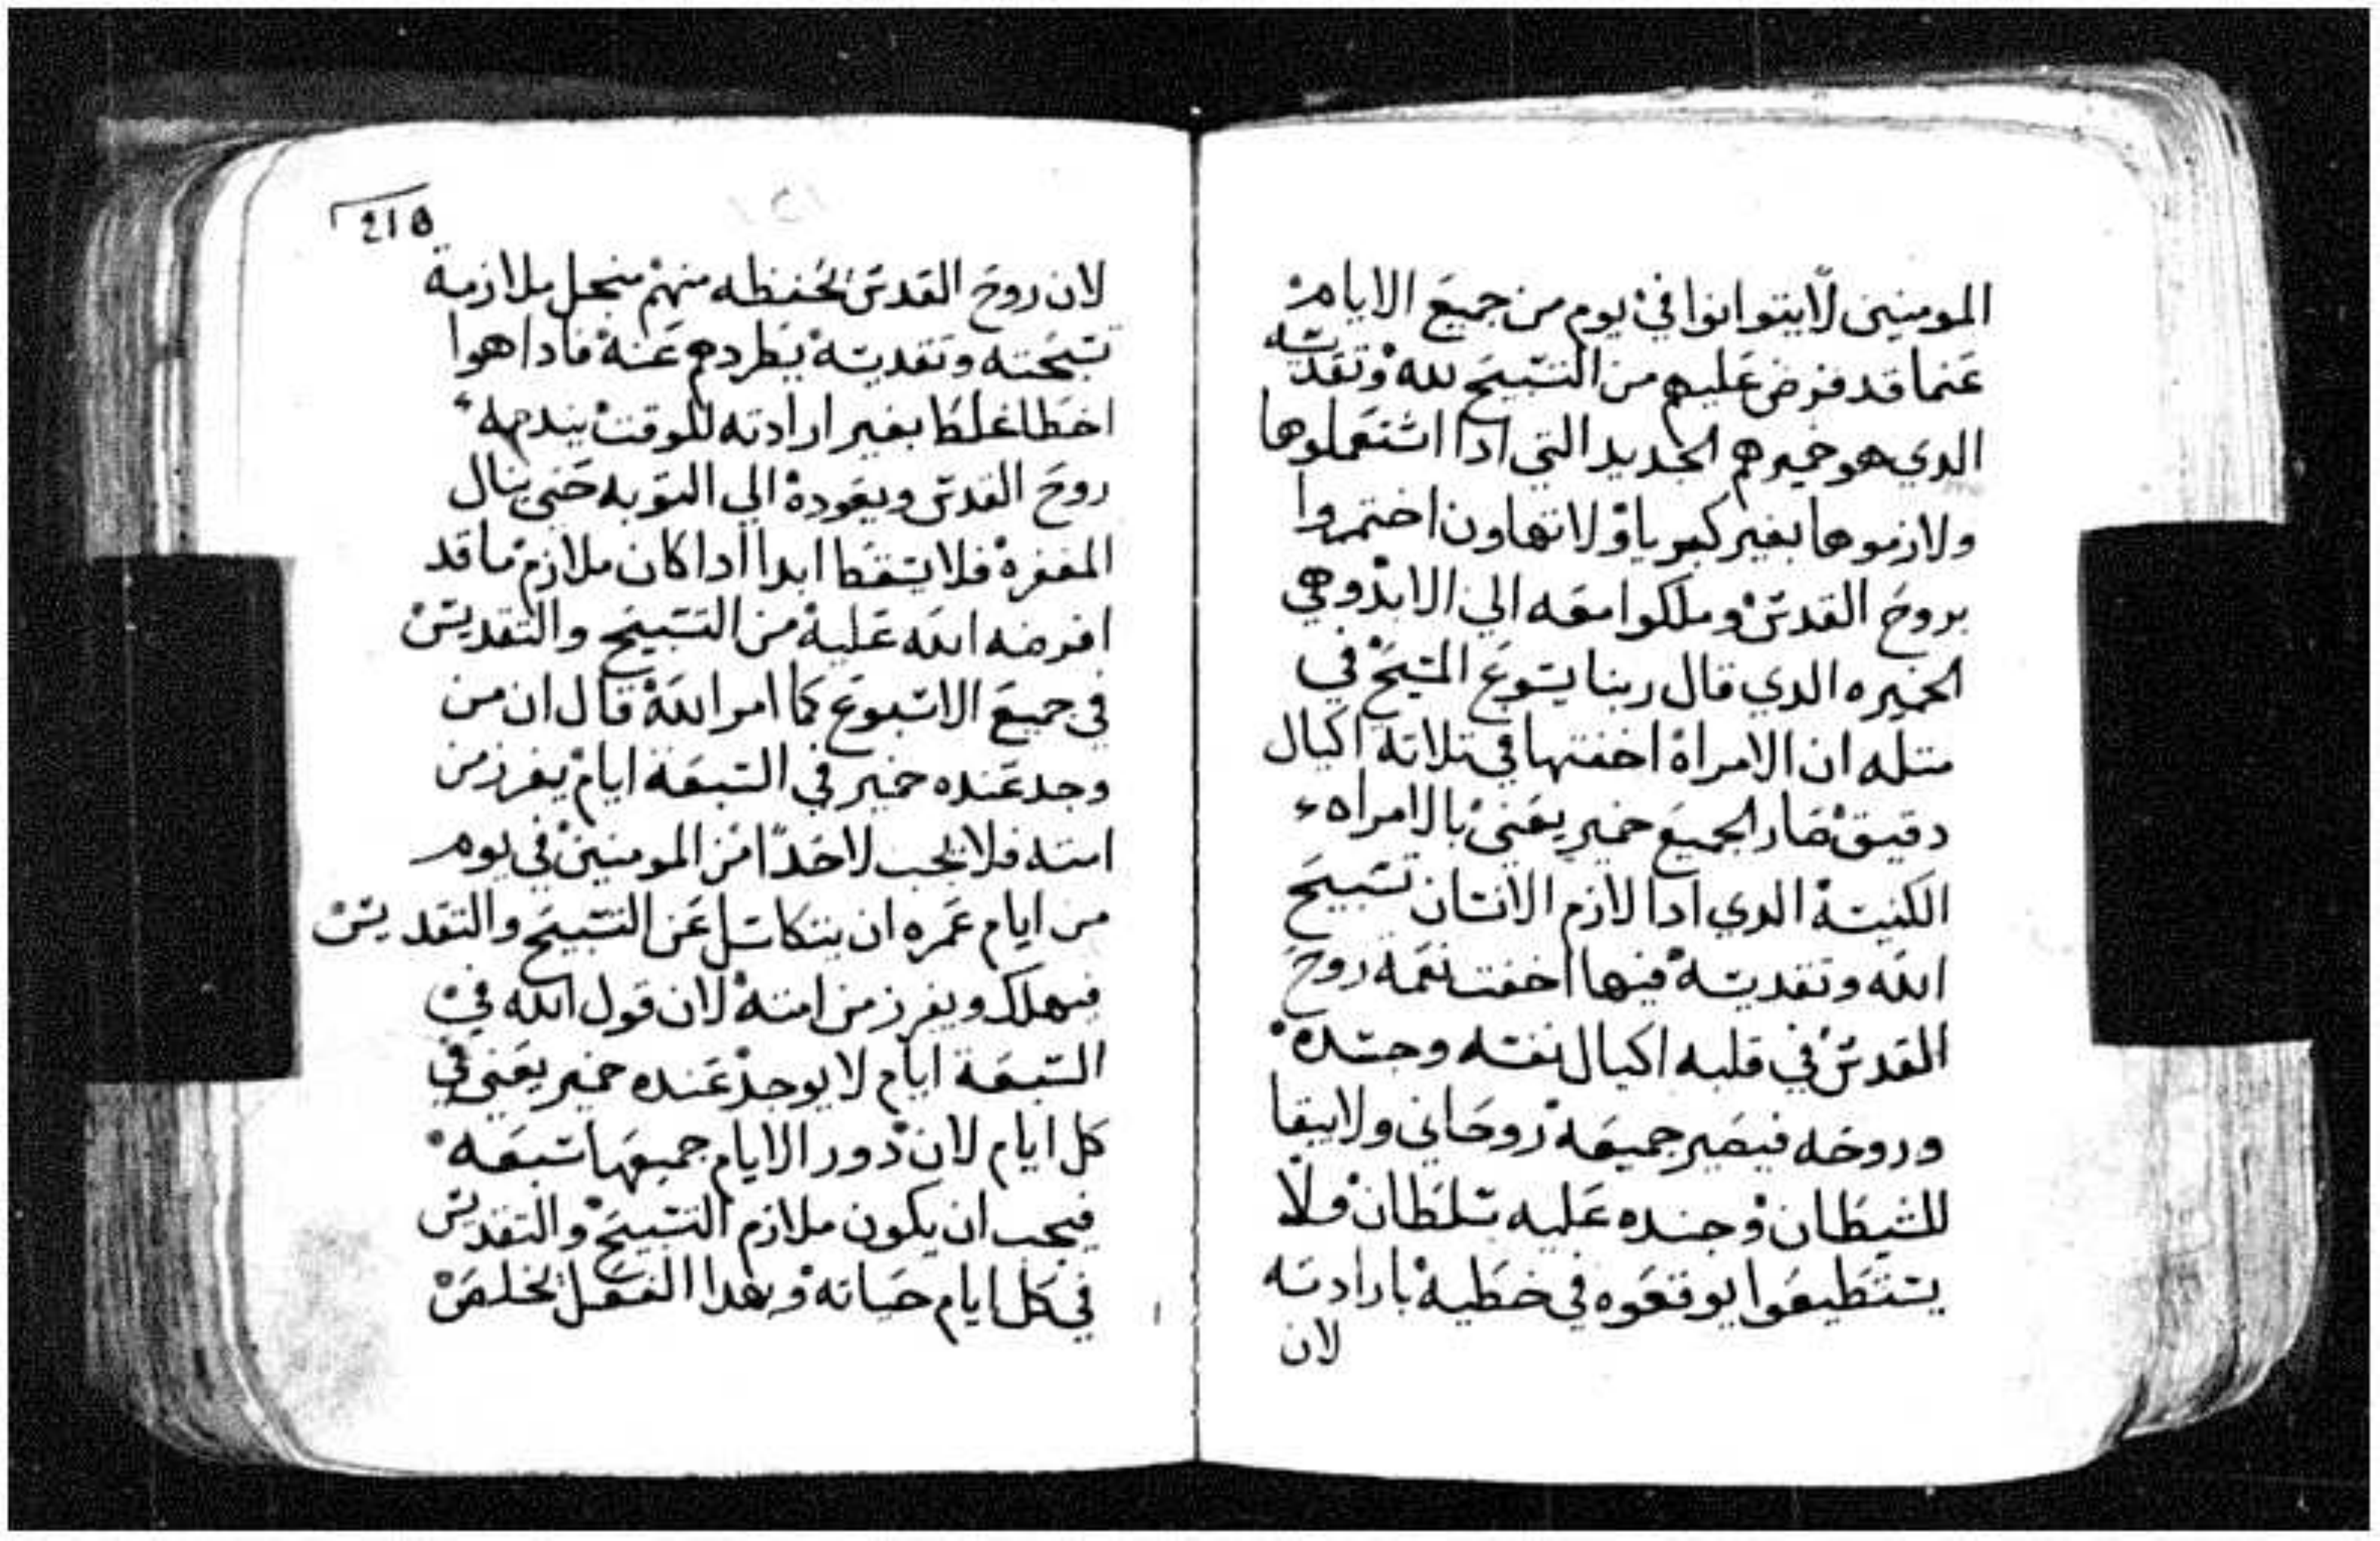 المومنين لا يتوانوا في يوم من جميع الايام
عنما قد فرض عليهم من التسبيح لله وتقديسه
الدي هو خميرهم الجديد التي ادا اشتعملوها
ولازموها بغير كبريا ولا تهاون اختمروا
بروح القدس وملكوا معه الي الابد وهي
الخميره الدي قال ربنا يسوع المسيح في
متله ان الامراة اخفتها في تلاتة اكيال
دقيق صار الجميع خمير يعني بالامراه
الكنيسة الدي ادا لازم الانسان تسبيح
الله وتقديسه فيها اخفت نعمة روح
القدس في قلبه اكيال نفسه وجسده
وروحه فيصير جميعه روحاني ولا يبقا
للشيطان وجنده عليه سلطان ولا
يستطيعوا يوقعوه في خطية بارادته
لان
218
لان روح القدس لحفظه منهم منجل ملازمة
تسبحته وتقديسه يطردهم عنه فادا هوا
اخطا غلطا بغير ارادته للوقت يندمه
روح القدس ويعوده الي التوبه حتي ينال
المغفرة فلا يسقط ابدا ادا كان ملازم ما قد
افرضه الله عليه من التسبيح والتقديس
في جميع الاسبوع كما امر الله قال ان من
وجد عنده خمير في السبعة ايام يفرز من
امته فلا يجب لاحدا من المومنين في يوم
من ايام عمره ان يتكاسل عن التسبيح والتقديس
فيهلك ويفرز من امته لان قول الله في
السبعة ايام لا يوجد عنده خمير يعني في
كل ايام لان دور الايام جميعها سبعه
فيجب ان يكون ملازم التسبيح والتقديس
في كل ايام حياته وبهدا الفعل يخلص